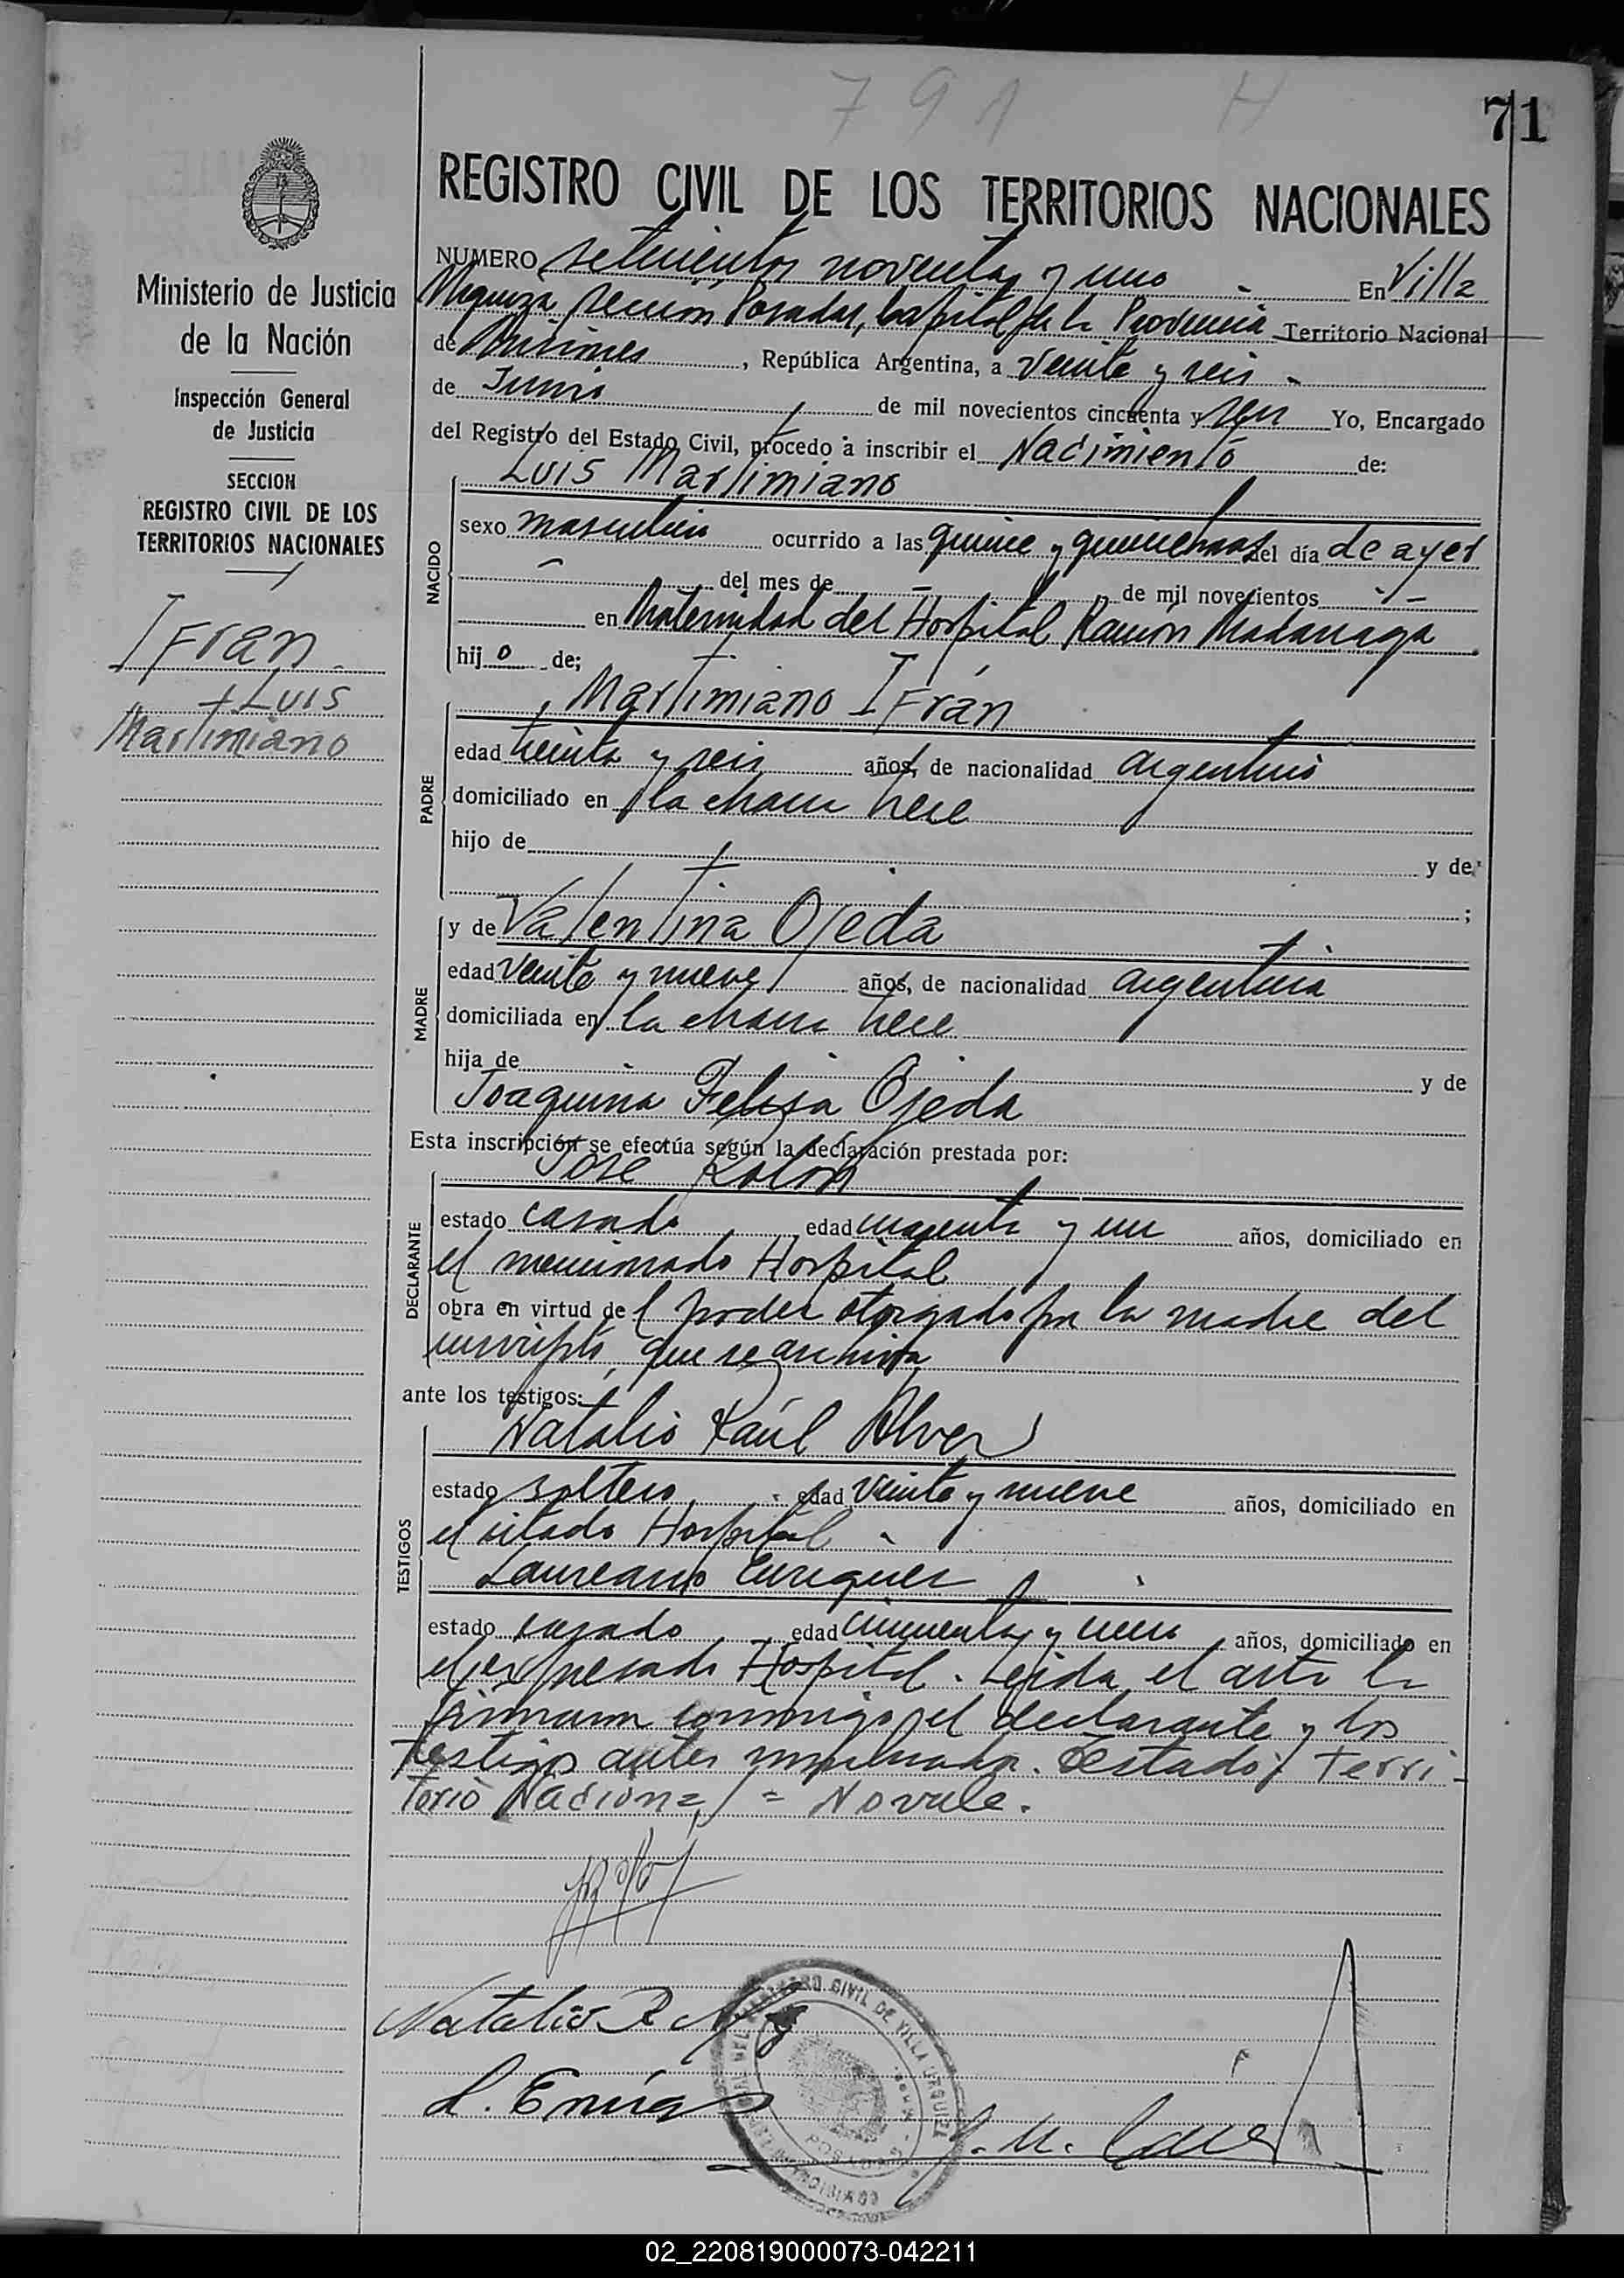 791 H
71
REGISTRO CIVIL DE LOS TERRITORIOS NACIONALES
Ministerio de Justicia
de la Nación
Inspección General
de Justicia
SECCION
REGISTRO CIVIL DE LOS
TERRITORIOS NACIONALES
IFran
+ Luis
Martimiano
NUMERO setecientos noventa y uno - En Villa
Urquiza, sección Posadas, Capital de la Provincia Territorio Nacional
de Misiones, República Argentina, a veinte y seis -
de Junio de mil novecientos cincuenta y seis Yo, Encargado
del Registro del Estado Civil, procedo a inscribir el Nacimiento de:
NACIDO
Luis Martimiano
sexo masculino ocurrido a las quince y quince horas del día de ayer
- del mes de - de mil novecientos -
en Maternidad del Hospital Ramón Madariaga
hijo de;
PADRE
Martimiano IFrán
edad treinta y seis años, de nacionalidad argentino
domiciliado en la chacra trece
hijo de y de
;
MADRE
y de Valentina Ojeda
edad veinte y nueve años, de nacionalidad argentina
domiciliada en la chacra trece
hija de y de
Joaquina Felisa Ojeda
Esta inscripción se efectúa según la declaración prestada por:
DECLARANTE
José Kolon
estado casado edad cuarenta y un años, domiciliado en
el mencionado Hospital
obra en virtud del poder otorgado por la madre del
inscripto, que se archiva
ante los testigos:
TESTIGOS
Natalio Raúl Alvez
estado soltero edad veinte y nueve años, domiciliado en
el citado Hospital -
Laureano Enriquez
estado casado edad cincuenta y uno años, domiciliado en
el expresado Hospital. Leída el acta la
firmaron conmigo, el declarante y los
testigos antes nombrados. Testado: Terri-
torio Nacional = No vale.
Natalio R
L. Enriq
REGISTRO CIVIL DE VILLA URQUIZA
POSADAS
02_220819000073-042211